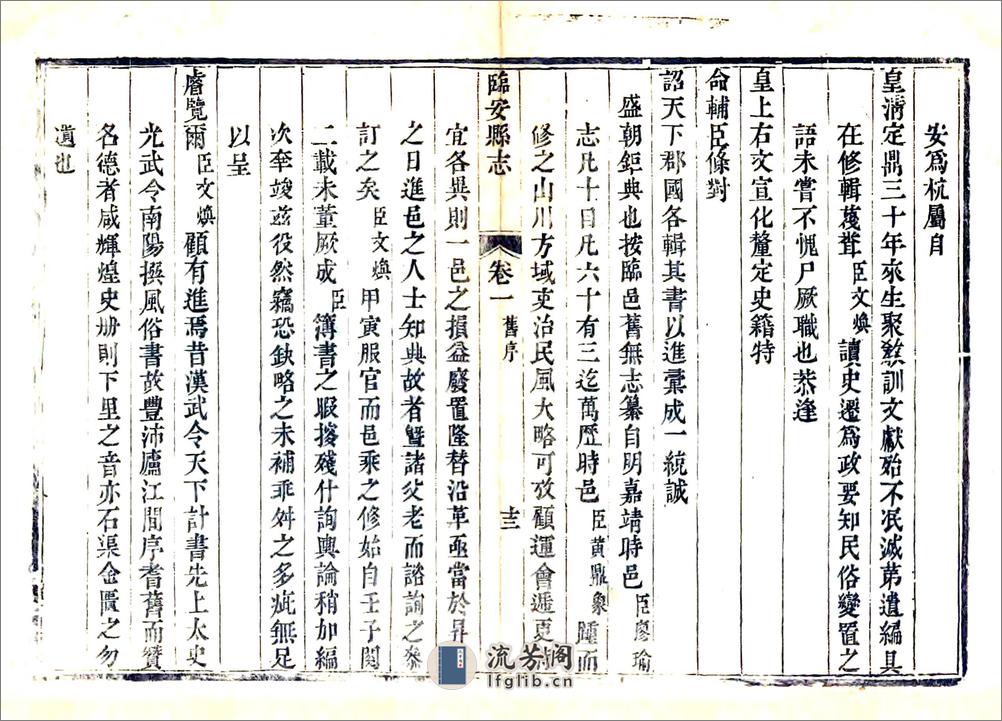 安爲杭屬自
皇淸定鼎三十年來生聚敎訓文獻始不泯滅第遺編具
在修輯蔑聾臣文煥讀史遷爲政要知民俗變置之
語未嘗不愧尸厥職也恭逢
皇上右文宣化釐定史籍特
命輔臣條對
詔天下郡國各輯其書以進彙成一統誠
盛朝鉅典也按臨邑舊無志纂自明嘉靖時邑臣廖瑜
志凡十目凡六十有三迄萬歷時邑臣黃鼎象踵而
修之山川方域吏治民風大略可攷顧運會遞更
臨安縣志
卷一
舊序
十三
宜各異則一邑之損益廢置隆替沿革亟當於昇
之日進邑之人士知典故者曁諸父老而諮詢之叅
訂之矣臣文煥甲寅服官而邑乘之修始自壬子閱
二載未蕫厥成臣簿書之暇摉殘什詢輿論稍加編
次牽竣兹役然竊恐缺略之未補乖舛之多疵無足
以呈
睿覽爾臣文煥顧有進焉昔漢武令天下計書先上太史
光武令南陽撰風俗書故豐沛廬江間序耆舊而贊
名德者咸輝煌史册則下里之音亦石渠金匱之勿
遺也
流芳阁
lfglib.cn